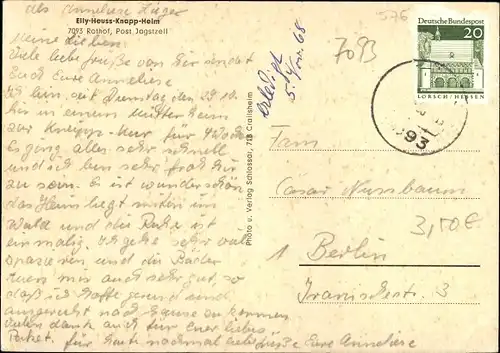 als Anneliese
Elly-Heuss-Knapp-Heim
7093 Rathof, Post Jagstzell
Meine Lieben.
Viele liebe Grüße von hier sendet
Euch Eure Anneliese.
Ich bin seit Dienstag den 29.10.
hier in einem Mütterheim
zur Kneipp-Kur für 4 Wochen
Es ging alles sehr schnell
und ich bin sehr froh hier
zu sein. Es ist wunderschön
das Heim liegt mitten im
Wald und die Ruhe ist
einmalig. Ich gehe sehr viel
spazieren und die Bäder
tuen mir auch sehr gut, so
daß ich hoffe gesund und
ausgeruht nach Hause zu kommen
Vielen Dank auch für Euer liebes
Paket. für heute nochmal liebe Grüße Eure Anneliese
Photo u. Verlag Schlossar, 718 Crailsheim
erledigt
5. Nov. 68
7093
576
Deutsche Bundespost
20
LORSCH/HESSEN
Fam
Cäsar Nussbaum
3,50€
1 Berlin
Iranische str. 3